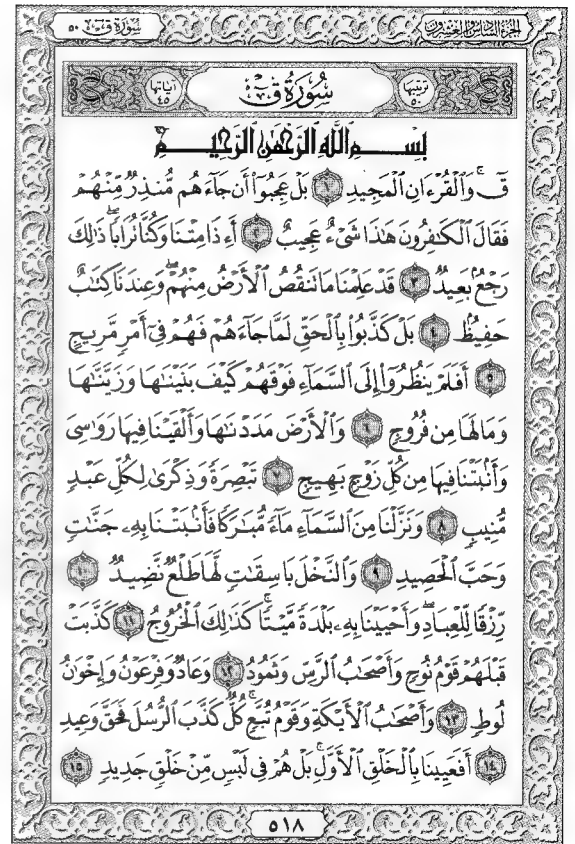 سُورَةُ قٓ ٥٠
الجزء السادس والعشرون
آياتها ٤٥
سُورَةُ قٓ
ترتيبها ٥٠
بِسْمِ ٱللَّهِ ٱلرَّحْمَٰنِ ٱلرَّحِيمِ
قٓ ۚ وَٱلْقُرْءَانِ ٱلْمَجِيدِ ١ بَلْ عَجِبُوٓا۟ أَن جَآءَهُم مُّنذِرٌ مِّنْهُمْ
فَقَالَ ٱلْكَٰفِرُونَ هَٰذَا شَىْءٌ عَجِيبٌ ٢ أَءِذَا مِتْنَا وَكُنَّا تُرَابًا ۖ ذَٰلِكَ
رَجْعٌۢ بَعِيدٌ ٣ قَدْ عَلِمْنَا مَا تَنقُصُ ٱلْأَرْضُ مِنْهُمْ ۖ وَعِندَنَا كِتَٰبٌ
حَفِيظٌۢ ٤ بَلْ كَذَّبُوا۟ بِٱلْحَقِّ لَمَّا جَآءَهُمْ فَهُمْ فِىٓ أَمْرٍ مَّرِيجٍ
٥ أَفَلَمْ يَنظُرُوٓا۟ إِلَى ٱلسَّمَآءِ فَوْقَهُمْ كَيْفَ بَنَيْنَٰهَا وَزَيَّنَّٰهَا
وَمَا لَهَا مِن فُرُوجٍ ٦ وَٱلْأَرْضَ مَدَدْنَٰهَا وَأَلْقَيْنَا فِيهَا رَوَٰسِىَ
وَأَنۢبَتْنَا فِيهَا مِن كُلِّ زَوْجٍۭ بَهِيجٍ ٧ تَبْصِرَةً وَذِكْرَىٰ لِكُلِّ عَبْدٍ
مُّنِيبٍ ٨ وَنَزَّلْنَا مِنَ ٱلسَّمَآءِ مَآءً مُّبَٰرَكًا فَأَنۢبَتْنَا بِهِۦ جَنَّٰتٍ
وَحَبَّ ٱلْحَصِيدِ ٩ وَٱلنَّخْلَ بَاسِقَٰتٍ لَّهَا طَلْعٌ نَّضِيدٌ ١٠
رِّزْقًا لِّلْعِبَادِ ۖ وَأَحْيَيْنَا بِهِۦ بَلْدَةً مَّيْتًا ۚ كَذَٰلِكَ ٱلْخُرُوجُ ١١ كَذَّبَتْ
قَبْلَهُمْ قَوْمُ نُوحٍ وَأَصْحَٰبُ ٱلرَّسِّ وَثَمُودُ ١٢ وَعَادٌ وَفِرْعَوْنُ وَإِخْوَٰنُ
لُوطٍ ١٣ وَأَصْحَٰبُ ٱلْأَيْكَةِ وَقَوْمُ تُبَّعٍ ۚ كُلٌّ كَذَّبَ ٱلرُّسُلَ فَحَقَّ وَعِيدِ
١٤ أَفَعَيِينَا بِٱلْخَلْقِ ٱلْأَوَّلِ ۚ بَلْ هُمْ فِى لَبْسٍ مِّنْ خَلْقٍ جَدِيدٍ ١٥
٥١٨